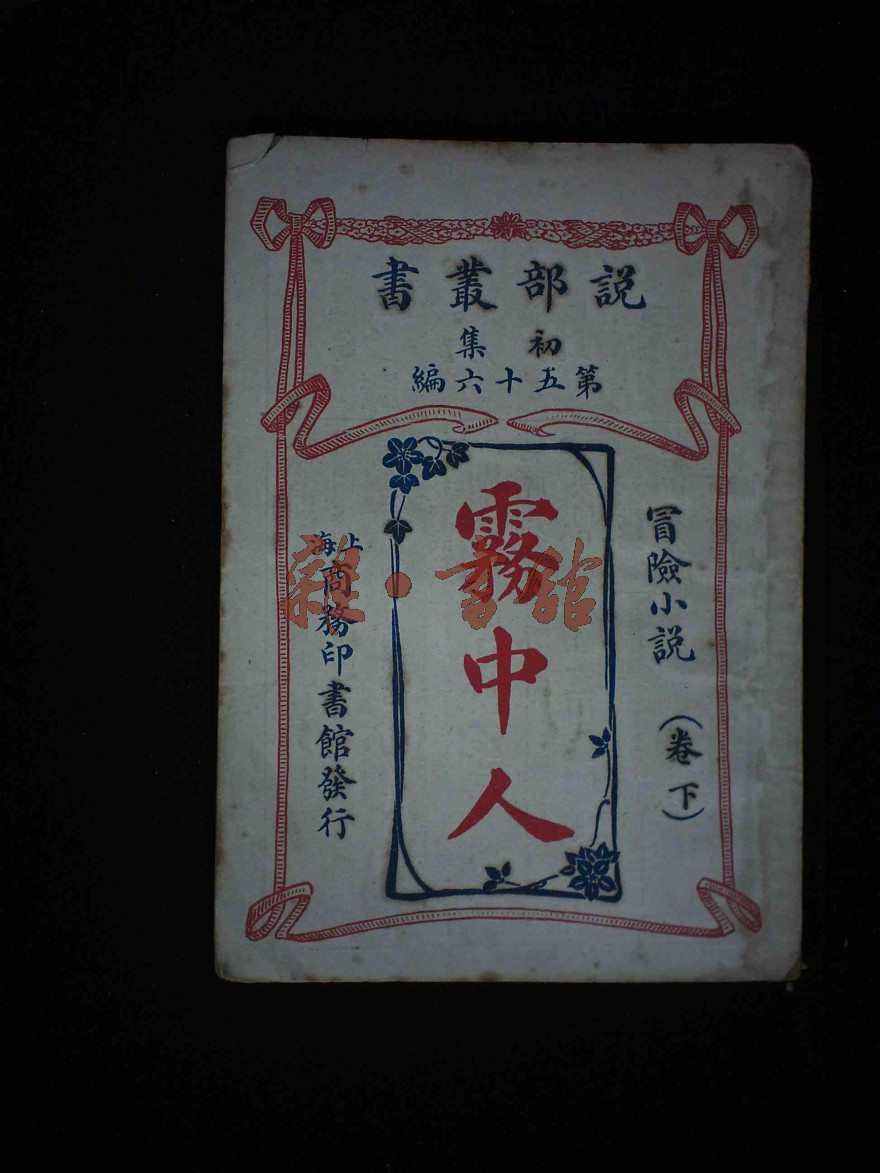 説部叢書
初集
第五十六編
冒險小説 (卷下)
霧中人
上海商務印書館發行
雜·書館